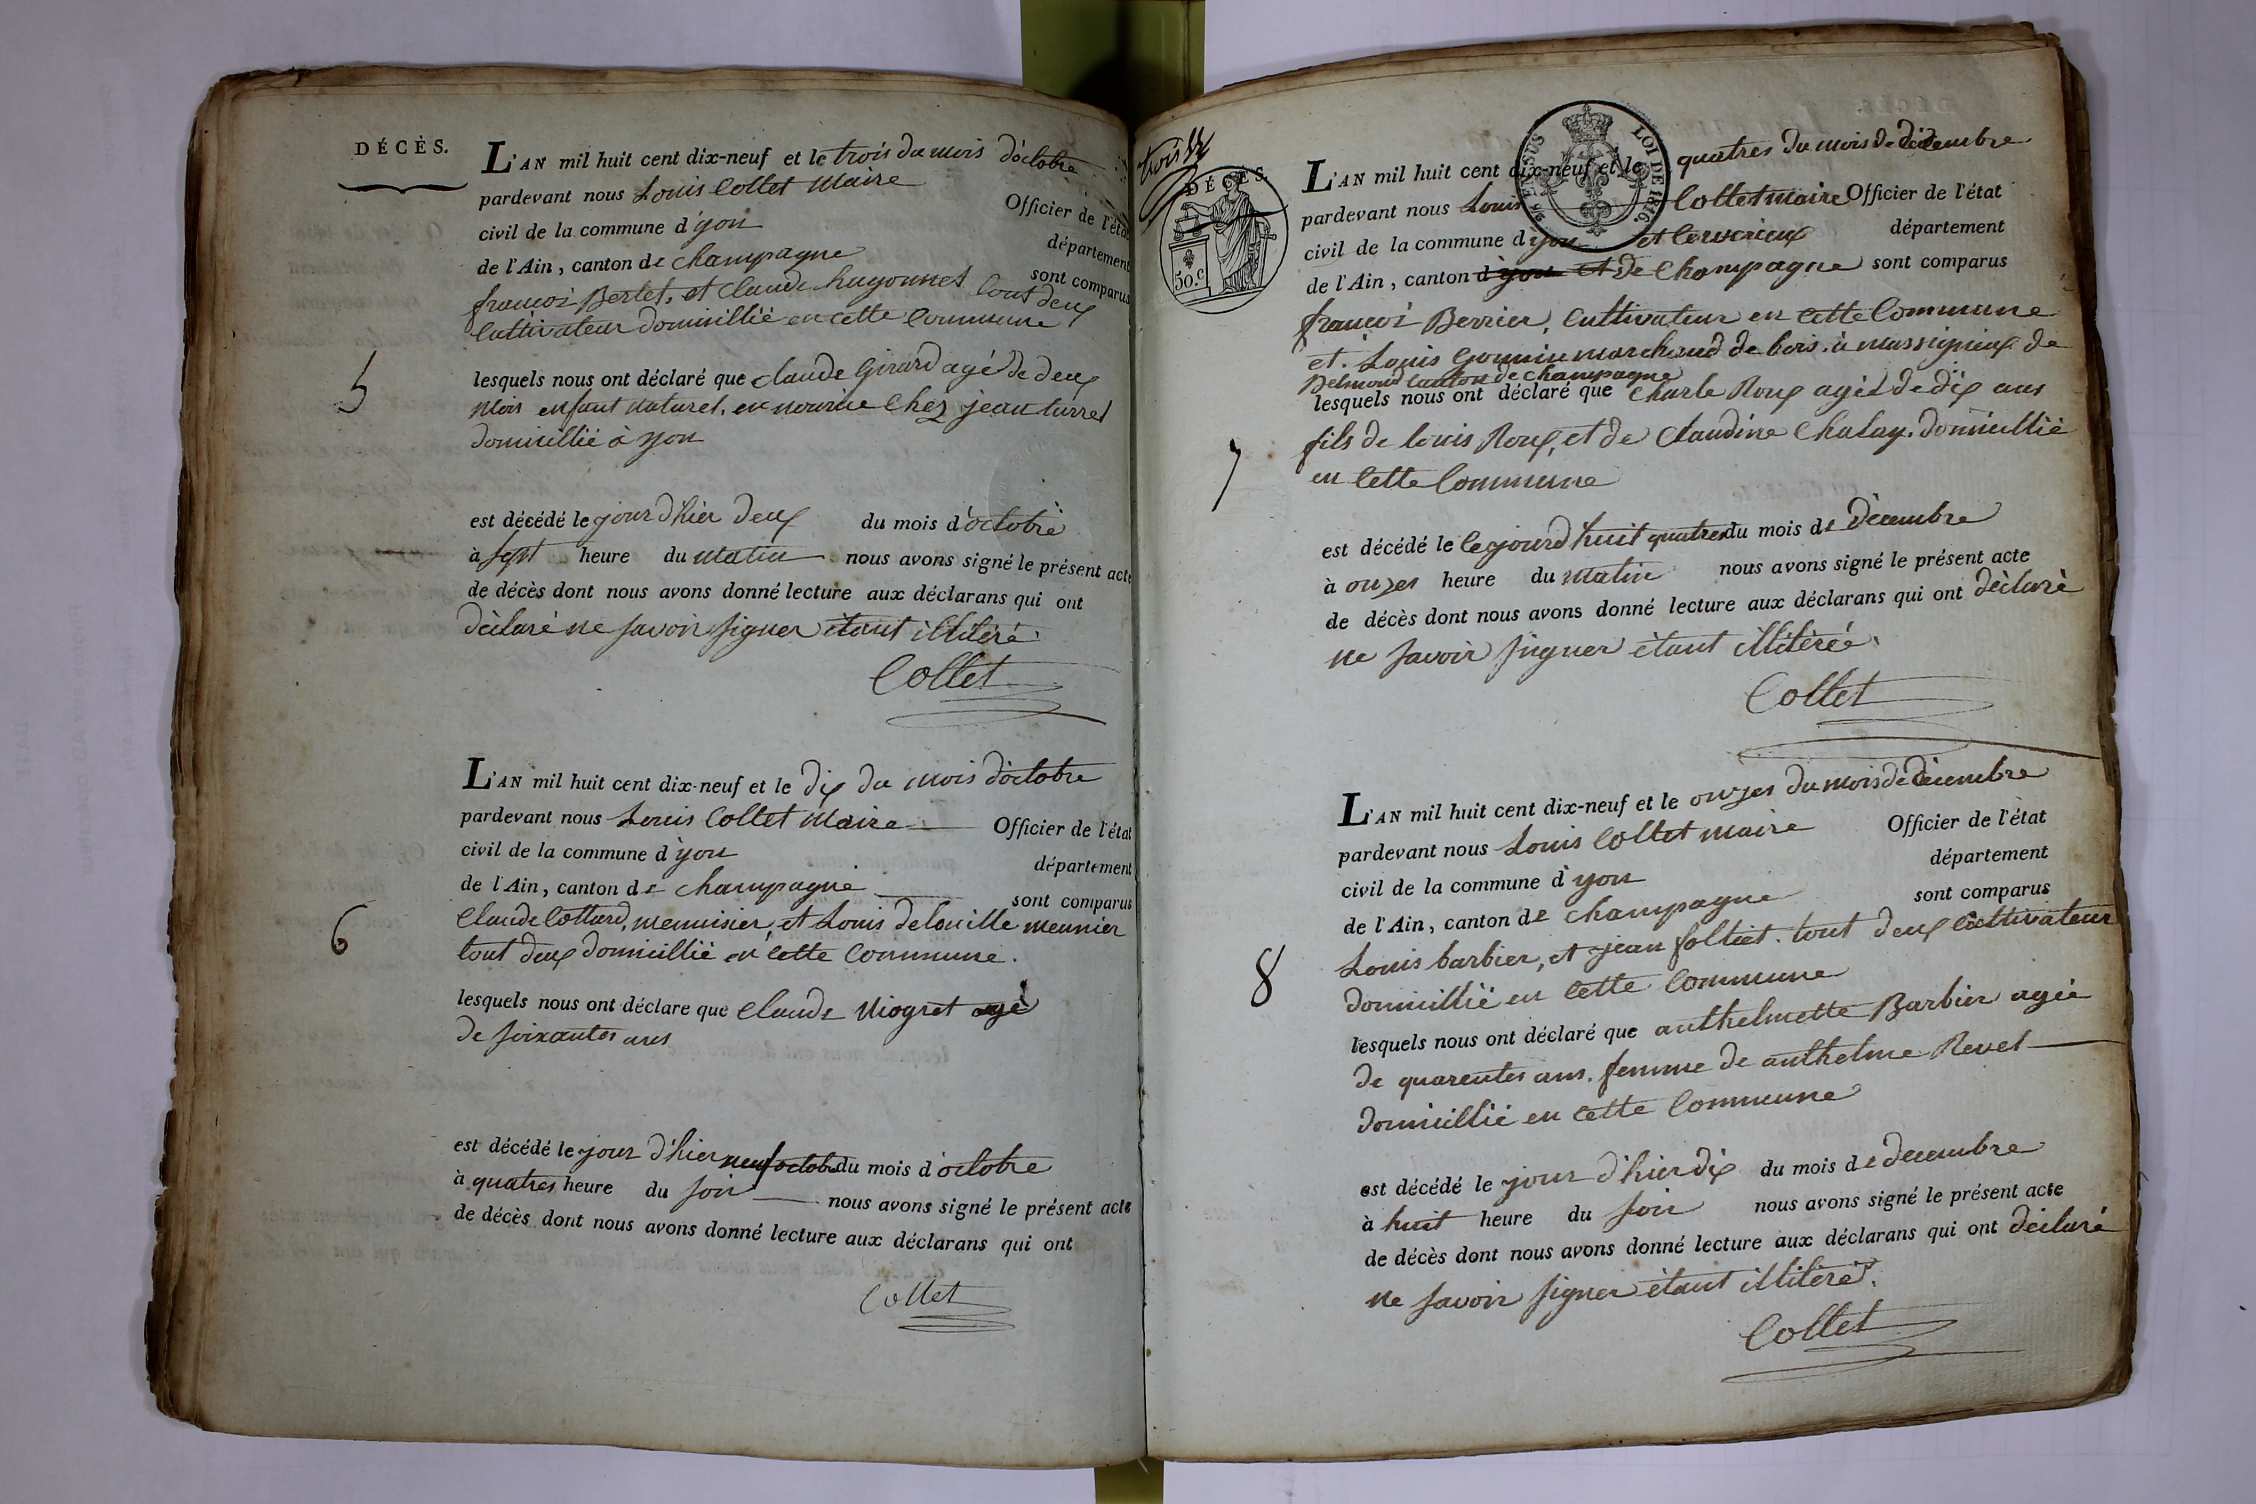 DÉCÈS.
L'AN mil huit cent dix-neuf et le trois du mois d'octobre
pardevant nous Louis Collet Maire Officier de l'état
civil de la commune d'yon département
de l'Ain, canton de champagne sont comparus
françois Bertet, et Claude hugonnet tout deux
Cultivateur domicillié en cette Commune
5
lesquels nous ont déclaré que claude Girard agé de deux
Mois enfant naturel, en nourice Chez jean turrel
domicillié à yon
est décédé le jour d'hier deux du mois d'octobre
à sept heure du matin nous avons signé le présent acte
de décès dont nous avons donné lecture aux déclarans qui ont
dèclaré ne savoir signer ètant illitéré
Collet
L'AN mil huit cent dix-neuf et le dix du mois d'octobre
pardevant nous Louis Collet Maire Officier de l'état
civil de la commune d'yon département
de l'Ain, canton de champagne sont comparus
Claude Cottard, menuisier, et Louis delouille meunier
tout deux domicillié en cette Commune.
6
lesquels nous ont déclare que Claude Niogret agé
de soixantes ans
est décédé le jour d'hier neuf octobre du mois d'octobre
à quatres heure du soir nous avons signé le présent acte
de décès dont nous avons donné lecture aux déclarans qui ont
Collet
trois
DÉCÈS.
50.c
LOI DE 1816.
L'AN mil huit cent dix-neuf et le quatres du mois de décembre
pardevant nous Louis Collet maire Officier de l'état
civil de la commune d'yon et Cerverieux département
de l'Ain, canton d'yon et de Champagne sont comparus
françois Berrier, Cultivateur en cette Commune
et Louis Gonnin marchand de bois à massignieux de
Belmond canton de champagne
lesquels nous ont déclaré que Charle Roux agés de dix ans
7
fils de louis Roux, et de Claudine Chalay, domicillié
en Cette Commune
est décédé le le jourd'huit quatres du mois de dècembre
à onzes heure du matin nous avons signé le présent acte
de décès dont nous avons donné lecture aux déclarans qui ont dèclarè
ne savoir signer ètant illitéré
Collet
L'AN mil huit cent dix-neuf et le onzes du mois de dècembre
pardevant nous Louis Collet maire Officier de l'état
civil de la commune d'yon département
de l'Ain, canton de champagne sont comparus
Louis barbier, et jean folliet tout deux cultivateur
8
domicillié en cette Commune
lesquels nous ont déclaré que anthelmette Barbier agée
de quarentes ans, femme de anthelme Revel
domicillié en cette Commune
est décédé le jour d'hier dix du mois de decembre
à huit heure du soir nous avons signé le présent acte
de décès dont nous avons donné lecture aux déclarans qui ont dèclaré
ne savoir signer ètant illitéré.
Collet